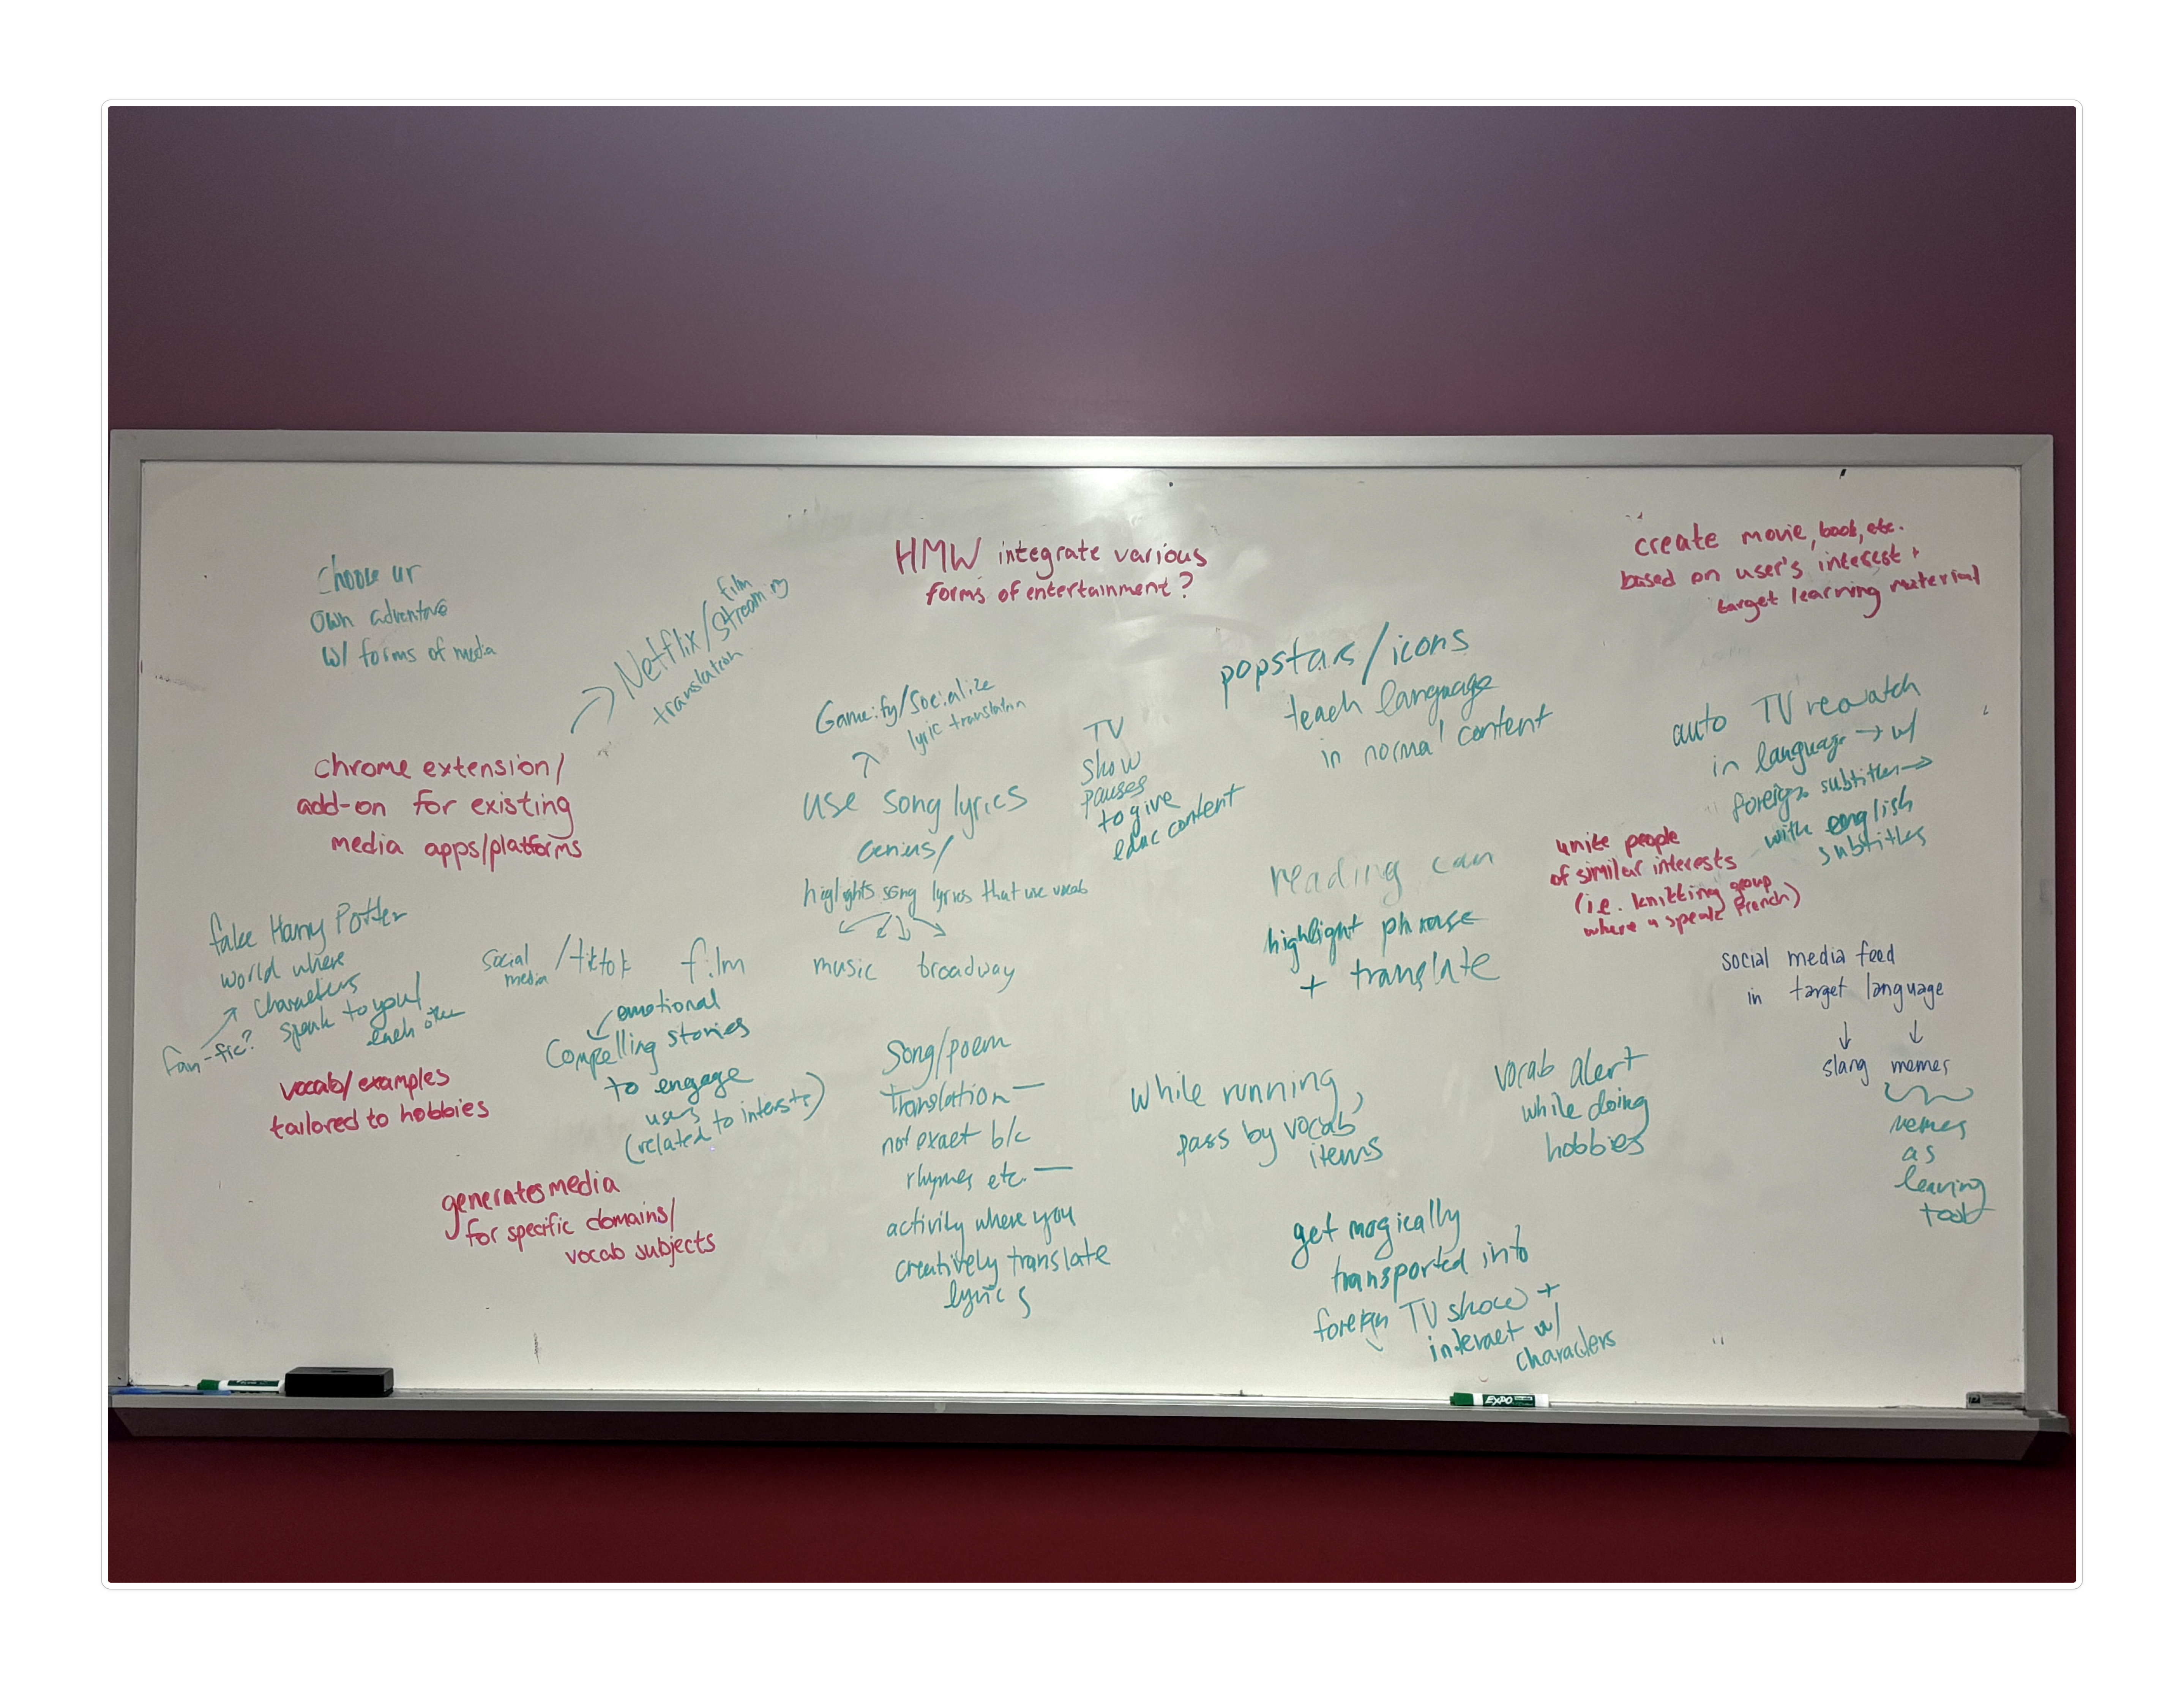 HMW integrate various
forms of entertainment?
choose ur
own adventure
w/ forms of media
Netflix/film
streaming
translation
chrome extension/
add-on for existing
media apps/platforms
Gameify/Socialize
lyric translation
use song lyrics
Genius/
higlights song lyrics that use vocab
music broadway
TV
show
pauses
to give
educ content
popstars/icons
teach language
in normal content
create movie, book, etc.
based on user's interest +
target learning material
auto TV rewatch
in language → w/
foreign subtitles →
with english
subtitles
unite people
of similar interests
(i.e. knitting group
where u speak French)
reading can
highlight phrase
+ translate
fake Harry Potter
world where
characters
speak to you/
each other
fan-fic?
social
media
/tiktok
film
emotional
compelling stories
to engage
users
(related to interests)
vocab/examples
tailored to hobbies
generates media
for specific domains/
vocab subjects
Song/poem
translation —
not exact b/c
rhymes etc. —
activity where you
creatively translate
lyrics
while running,
pass by vocab
items
vocab alert
while doing
hobbies
get magically
transported into
foreign TV show +
interact w/
characters
social media feed
in target language
slang memes
memes
as
learing
tool
EXPO